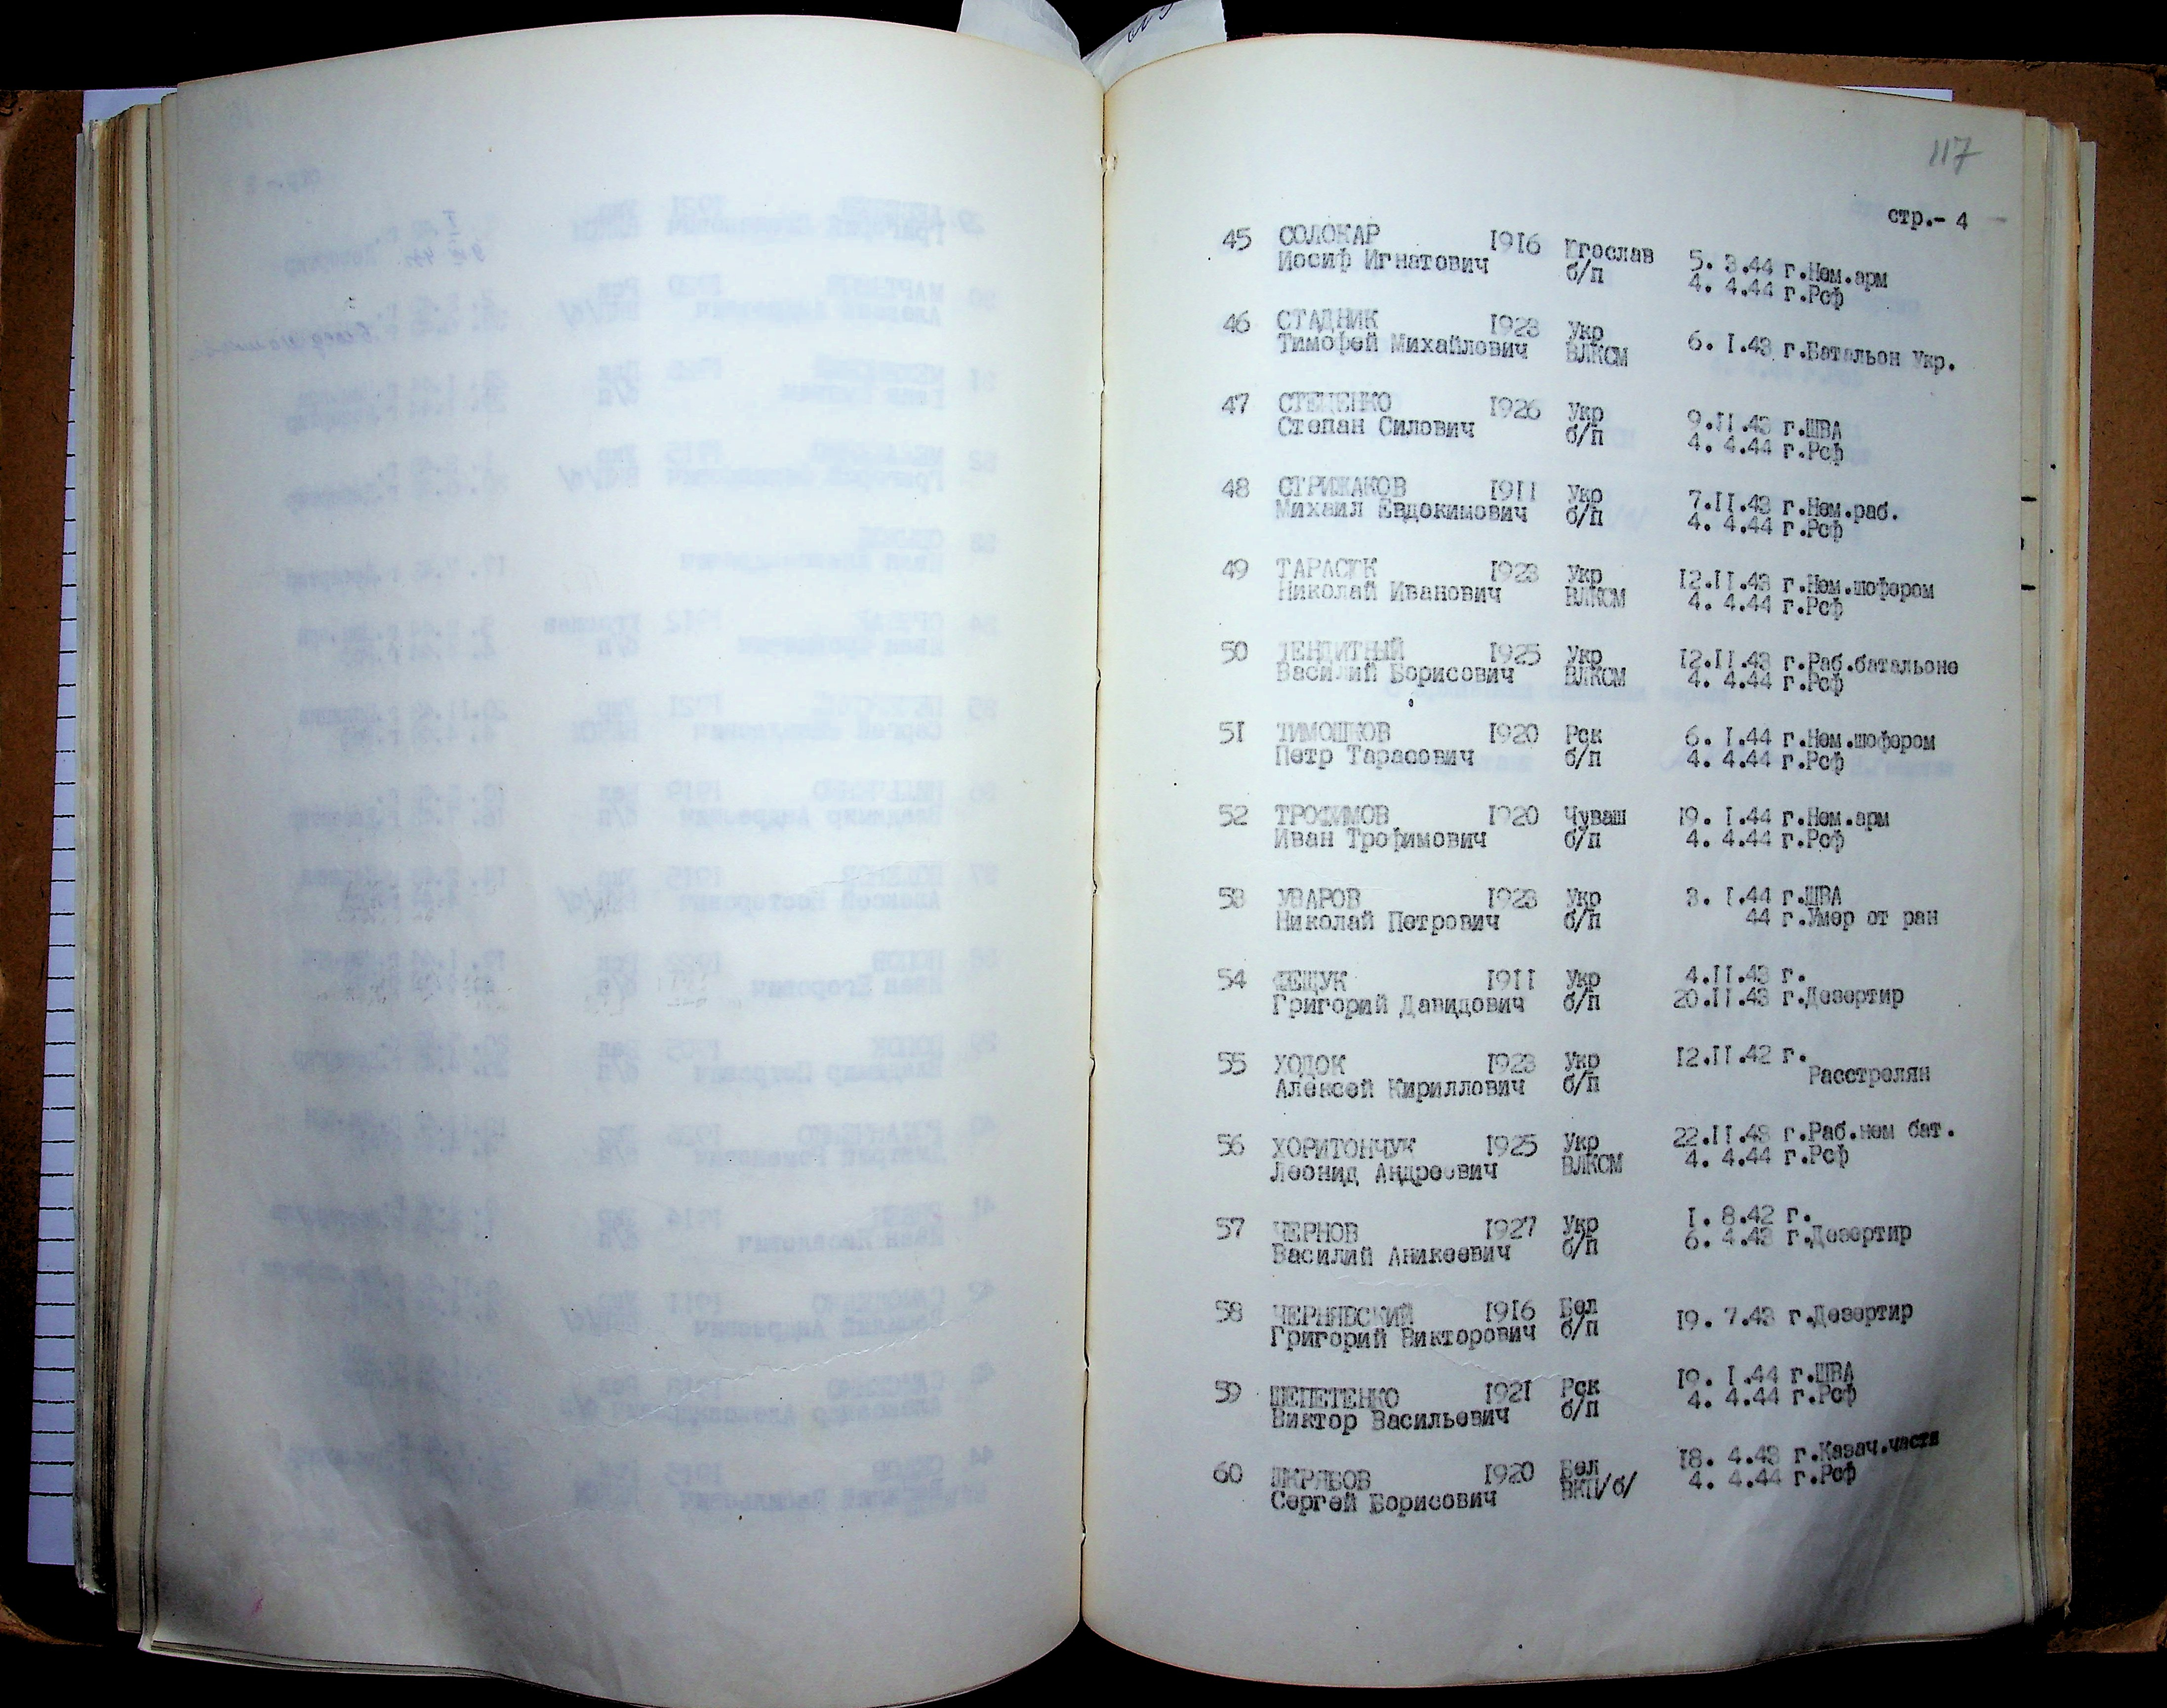 117
стр.- 4
45 СОЛОКАР 1916 Югослав 5. 3.44 г.Нем.арм
Иосиф Игнатович б/п 4. 4.44 г.Рсф
46 СТАДНИК 1923 Укр 6. I.43 г.Батальон Укр.
Тимофей Михайлович ВЛКСМ
47 СТЕЦЕНКО 1926 Укр 9.II.43 г.ШВА
Степан Силович б/п 4. 4.44 г.Рсф
48 СТРИЖАКОВ 1911 Укр 7.II.43 г.Нем.раб.
Михаил Евдокимович б/п 4. 4.44 г.Рсф
49 ТАРАСЮК 1923 Укр 12.II.43 г.Нем.шофером
Николай Иванович ВЛКСМ 4. 4.44 г.Рсф
50 ТЕНДИТНЫЙ 1925 Укр 12.II.43 г.Раб.батальоне
Василий Борисович ВЛКСМ 4. 4.44 г.Рсф
51 ТИМОШКОВ 1920 Рск 6. I.44 г.Нем.шофером
Петр Тарасович б/п 4. 4.44 г.Рсф
52 ТРОФИМОВ 1920 Чуваш 19. I.44 г.Нем.арм
Иван Трофимович б/п 4. 4.44 г.Рсф
53 УВАРОВ 1923 Укр 3. I.44 г.ШВА
Николай Петрович б/п 44 г.Умер от ран
54 ФЕЩУК 1911 Укр 4.II.43 г.
Григорий Давидович б/п 20.II.43 г.Дезертир
55 ХОДОК 1923 Укр 12.II.42 г.
Алексей Кириллович б/п Расстрелян
56 ХОРИТОНЧУК 1925 Укр 22.II.43 г.Раб.нем бат.
Леонид Андреевич ВЛКСМ 4. 4.44 г.Рсф
57 ЧЕРНОВ 1927 Укр I. 8.42 г.
Василий Аникеевич б/п 6. 4.43 г.Дезертир
58 ЧЕРНЯВСКИЙ 1916 Бел 19. 7.43 г.Дезертир
Григорий Викторович б/п
59 ШЕПЕТЕНКО 1921 Рск 19. I.44 г.ШВА
Виктор Васильевич б/п 4. 4.44 г.Рсф
60 ШКРЯБОВ 1920 Бел 18. 4.43 г.Казач.части
Сергей Борисович ВКП/б/ 4. 4.44 г.Рсф